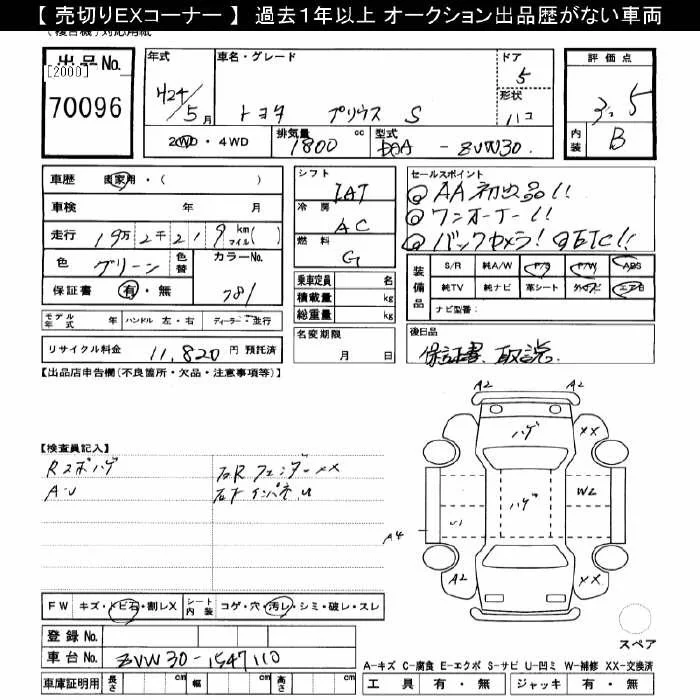 【 売切りEXコーナー 】 過去１年以上 オークション出品歴がない車両
出品No.
[2000]
70096
年式
H24/5月
車名・グレード
トヨタ プリウス S
ドア
5
形状
ハコ
評価点
3.5
内装
B
2WD・4WD
排気量 cc
1800
型式
DAA - ZVW30.
車歴 自家用・( )
車検 年 月
走行 19万2千219km マイル( )
色 グリーン 色替 カラーNo. 781
保証書 有・無
モデル年式 年 ハンドル 左・右 ディーラー・並行
リサイクル料金 11,820 円 預託済
シフト
IAT
冷房
AC
燃料
G
乗車定員 名
積載量 kg
総重量 kg
名変期限
月 日
セールスポイント
◎AA初出品!!
◎ワンオーナー!!
◎バックカメラ! ◎ETC!!
装備品
S/R 純A/W P/S P/W ABS
純TV 純ナビ 革シート エアB
ナビ型番:
後日品
保証書、取説、
【出品店申告欄(不良箇所・欠品・注意事項等)】
【検査員記入】
Rスポハゲ
A・U
右RフェンダーXX
右Fインパネ
A2 A2
ハゲ
XX
W2
ハゲ
U1
A4
A2
XX
スペア
FW キズ・トビ石・割レX シート内装 コゲ・穴・汚レ・シミ・破レ・スレ
登録 No.
車台 No. ZVW30-1547110
車庫証明用 長さ cm 幅 cm 高さ cm
A-キズ C-腐食 E-エクボ S-サビ U-凹ミ W-補修 XX-交換済
工具 有・無 ジャッキ 有・無